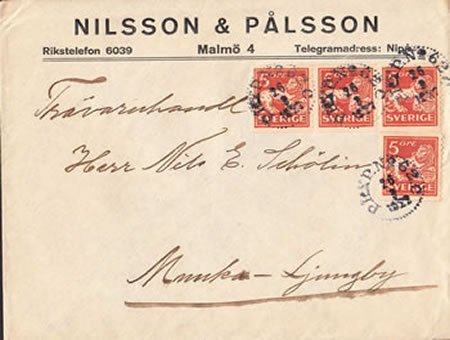 NILSSON & PÅLSSON
Rikstelefon 6039 Malmö 4 Telegramadress:
5 ÖRE 5 ÖRE 5 ÖRE
SVERIGE SVERIGE SVERIGE
Trävaruhandl
Herr Nils E. Schölin
5 ÖRE
SVERIGE
Munka-Ljungby